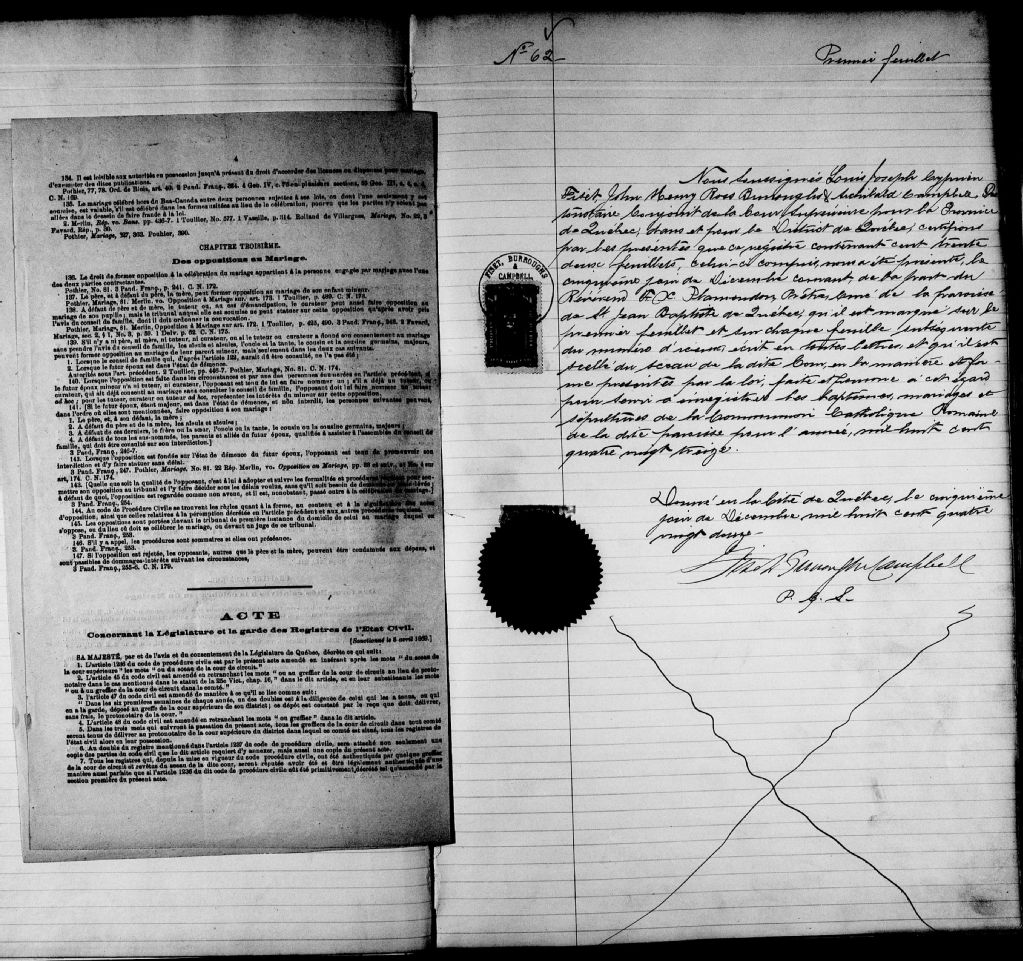 4
134. Il est loisible aux autorités en possession jusqu'à présent du droit d'accorder des licences ou dispenses pour mariage,
d'exempter des dites publications.
Pothier, 77, 78. Ord. de Blois, art. 40.
C. N. 169.
135. Le mariage célébré hors du Bas-Canada entre deux personnes sujettes à ses lois, ou dont l'une seulement y est
soumise, est valable, s'il est célébré dans les formes usitées au lieu de la célébration, pourvu que les parties n'y soient pas
allées dans le dessein de faire fraude à la loi.
2 Merlin, Rép. vo. Bans. pp. 486-7. 1 Toullier, No. 577. 1 Vazille, p. 314. Rolland de Villargues, Mariage, No.
Favard, Rép., p. 80.
Pothier, Mariage, 327, 363. Pouhier, 390.
CHAPITRE TROISIÈME.
Des oppositions au Mariage.
136. Le droit de former opposition à la célébration du mariage appartient à la personne engagée par mariage avec l'une
des deux parties contractantes.
Pothier, No. 81. 3 Pand. Franç., p. 241. C. N. 172.
137. Le père, et à défaut du père, la mère, peut former opposition au mariage de son enfant mineur.
Pothier, Mariage, 81. Merlin, vo. Opposition à Mariage sur. art. 173. 1 Toullier, p. 489. C. N. 173.
138. A défaut de père et de mère, le tuteur, ou, en cas d'émancipation, le curateur peut aussi faire opposition au
mariage de son pupille ; mais le tribunal auquel elle est soumise ne peut statuer sur cette opposition qu'après avoir pris
l'avis du conseil de famille, dont il doit ordonner la convocation.
139. S'il n'y a ni père, ni mère, ni tuteur, ni curateur, ou si le tuteur ou curateur a donné son consentement au mariage
sans prendre l'avis du conseil de famille, les aïeuls et aïeules, l'oncle et la tante, le cousin et la cousine germains, majeurs,
peuvent former opposition au mariage de leur parent mineur, mais seulement dans les deux cas suivants.
1. Lorsque le conseil de famille qui, d'après l'article 122, aurait dû être consulté, ne l'a pas été ;
2. Lorsque le futur époux est dans l'état de démence.
Autorités sous l'art. précédent. 2 Toullier, pp. 486-7. Pothier, Mariage, No. 81. C. N. 174.
140. Lorsque l'opposition est faite dans les circonstances et par une des personnes énoncées en l'article précédent, si
le futur époux mineur n'a ni tuteur, ni curateur, l'opposant est tenu de lui en faire nommer un ; s'il a déjà un tuteur, ou
curateur, qui ait déjà consenti au mariage sans consulter le conseil de famille, l'opposant doit lui faire nommer un tuteur
ad hoc ; pour les tuteur, curateur ou tuteur ad hoc, représenter les intérêts du mineur sur cette opposition.
141. [Si le futur époux, étant majeur, est dans l'état de démence, et non interdit, les personnes suivantes peuvent,
dans l'ordre où elles sont mentionnées, faire opposition à son mariage :
1. Le père, et, à son défaut, la mère ;
2. A défaut du père et de la mère, les aïeuls et aïeules ;
3. A défaut de ces derniers, le frère ou la sœur, l'oncle ou la tante, le cousin ou la cousine germains, majeurs ;
4. A défaut de tous les sus-nommés, les parents et alliés du futur époux, qualifiés à assister à l'assemblée du conseil de
famille, qui doit être consulté sur son interdiction.]
3 Pand. Franç., 246-7.
142. Lorsque l'opposition est fondée sur l'état de démence du futur époux, l'opposant est tenu de promouvoir son
interdiction et d'y faire statuer sans délai.
3 Pand. Franç., 247. Pothier, Mariage, No. 81. 22 Rép. Merlin, vo. Opposition au Mariage, pp. 88 et suiv., et No. 4 sur
art. 174. C. N. 174.
143. [Quelque soit la qualité de l'opposant, c'est à lui à adopter et suivre les formalités et procédures requises pour soumettre
son opposition au tribunal et l'y faire décider sous les délais voulus, sans qu'il soit besoin de demande en main-levée ;
à défaut de quoi, l'opposition est regardée comme non avenue, et il est, nonobstant, passé outre à la célébration du mariage.]
3 Pand. Franç., 254.
144. Au code de Procédure Civile se trouvent les règles quant à la forme, au contenu et à la signification des actes
d'opposition, ainsi que celles relatives à la péremption décrétée en l'article précédent et aux autres procédures requises.
145. Les oppositions sont portées devant le tribunal de première instance du domicile de celui au mariage duquel on
s'oppose, ou du lieu où doit se célébrer le mariage, ou devant un juge de ce tribunal.
3 Pand. Franç., 253.
146. S'il y a appel, les procédures sont sommaires et elles ont préséance.
3 Pand. Franç., 253.
147. Si l'opposition est rejetée, les opposants, autres que le père et la mère, peuvent être condamnés aux dépens, et
sont passibles de dommages-intérêts suivant les circonstances,
3 Pand. Franç., 255-6. C. N. 179.
ACTE
Concernant la Législature et la garde des Registres de l'Etat Civil.
[Sanctionné le 5 avril 1869.]
SA MAJESTÉ, par et de l'avis et du consentement de la Législature de Québec, décrète ce qui suit :
1. L'article 1236 du code de procédure civile est par le présent acte amendé en insérant après les mots " du sceau de
la cour supérieure " les mots " ou du sceau de la cour de circuit."
2. L'article 45 du code civil est amendé en retranchant les mots " ou au greffier de la cour de circuit au lieu du protonotaire
dans le cas mentionné dans le statut de la 25e Vict., chap. 16," dans le dit article, et en leur substituant les mots
" ou à un greffier de la cour de circuit dans le comté."
3. L'article 47 du code civil est amendé de manière à ce qu'il se lise comme suit :
" Dans les six premières semaines de chaque année, un des doubles est à la diligence de celui qui les a tenus, ou qui
en a la garde, déposé au greffe de la cour supérieure de son district ; ce dépôt est constaté par le reçu que doit délivrer,
sans frais, le protonotaire de la cour. "
4. L'article 48 du code civil est amendé en retranchant les mots " on greffier " dans le dit article.
5. Dans les trois mois qui suivront la passation du présent acte, tous les greffiers de la cour de circuit dans tout comté
seront tenus de délivrer au protonotaire de la cour supérieure du district dans lequel ce comté est situé, tous les registres de
l'état civil alors en leur possession.
6. Au double du registre mentionné dans l'article 1237 du code de procédure civile, sera attaché non seulement une
copie des parties du code civil que le dit article requiert d'y annexer, mais aussi une copie du présent acte.
7. Tous les registres qui, depuis la mise en vigueur du code de procédure civile, ont été authentiqués par quelque greffier
de la cour de circuit et revêtus du sceau de la dite cour, seront réputés avoir été et être légalement authentiqués d'une
manière aussi parfaite que si l'article 1236 du dit code de procédure civile eût été primitivement décrété tel qu'amendé par la
section première du présent acte.
No 62
Premier feuillet
FISET, BURROUGHS
& CAMPBELL
Nous soussignés Louis Joseph Cyprien
Fiset, John Henry Ross Burroughs & Archibald Campbell, Pro
tonotaire Conjoint de la Cour Supérieure pour la Province
de Québec, dans et pour le District de Québec, certifions
par les présentes que ce registre contenant cent trente
deux feuillets, celui-ci compris, nous a été présenté, le
cinquième jour de Décembre courant, de la part du
Révérend F. X. Plamondon, Prêtre, Curé de la paroisse
de St Jean Baptiste de Québec, qu'il est marqué sur le
premier feuillet et sur chaque feuillet subséquent
du numéro d'icelui, écrit en toutes lettres, et qu'il est
scellé du sceau de la dite Cour, en la manière et for
me présentés par la loi, faite et promue à cet égard
pour servir à enregistrer les baptêmes, mariages et
sépultures de la Communion Catholique Romaine
de la dite paroisse pour l'année, mil huit cent
quatre vingt treize.
Donné en la Cité de Québec, le cinquième
jour de Décembre mil huit cent quatre
vingt douze -
Fiset Burroughs Campbell
P. C. S.